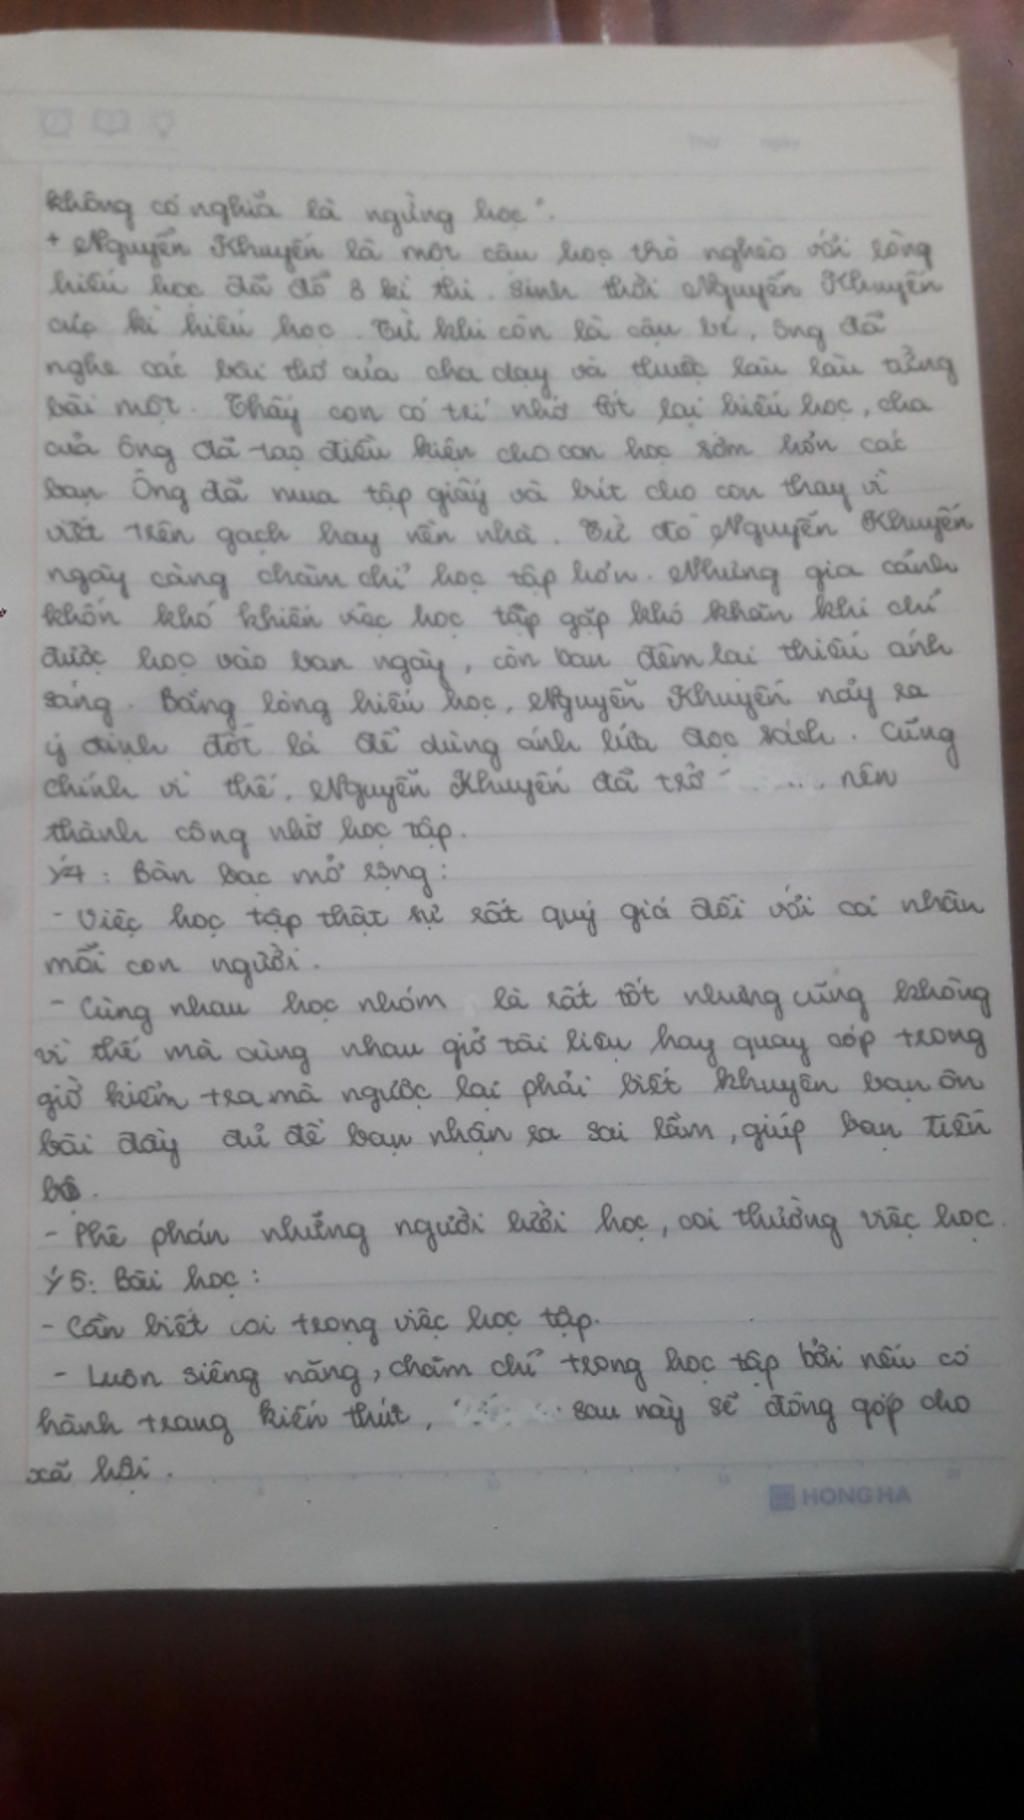 Thứ ngày
không có nghĩa là ngừng học".
+ Nguyễn Khuyến là một cậu học trò nghèo với lòng
hiếu học đã đỗ 3 kì thi. Sinh thời Nguyễn Khuyến
cực kì hiếu học. Từ khi còn là cậu bé, ông đã
nghe các bài thơ của cha dạy và thuộc làu làu từng
bài một. Thấy con có trí nhớ tốt lại hiếu học, cha
của ông đã tạo điều kiện cho con học sớm hơn các
bạn. Ông đã mua tập giấy và bút cho con thay vì
viết trên gạch hay nền nhà. Từ đó Nguyễn Khuyến
ngày càng chăm chỉ học tập hơn. Nhưng gia cảnh
khốn khó khiến việc học tập gặp khó khăn khi chỉ
được học vào ban ngày, còn ban đêm lại thiếu ánh
sáng. Bằng lòng hiếu học, Nguyễn Khuyến nảy ra
ý định đốt lá để dùng ánh lửa đọc sách. Cũng
chính vì thế, Nguyễn Khuyến đã trở nên
thành công nhờ học tập.
Ý4: Bàn bạc mở rộng:
- Việc học tập thật sự rất quý giá đối với cá nhân
mỗi con người.
- Cùng nhau học nhóm là rất tốt nhưng cũng không
vì thế mà cùng nhau giở tài liệu hay quay cóp trong
giờ kiểm tra mà ngược lại phải biết khuyên bạn ôn
bài đầy đủ để bạn nhận ra sai lầm, giúp bạn tiến
bộ.
- Phê phán những người lười học, coi thường việc học.
Ý5: Bài học:
- Cần biết coi trọng việc học tập.
- Luôn siêng năng, chăm chỉ trong học tập bởi nếu có
hành trang kiến thức, sau này sẽ đóng góp cho
xã hội.
HONG HA